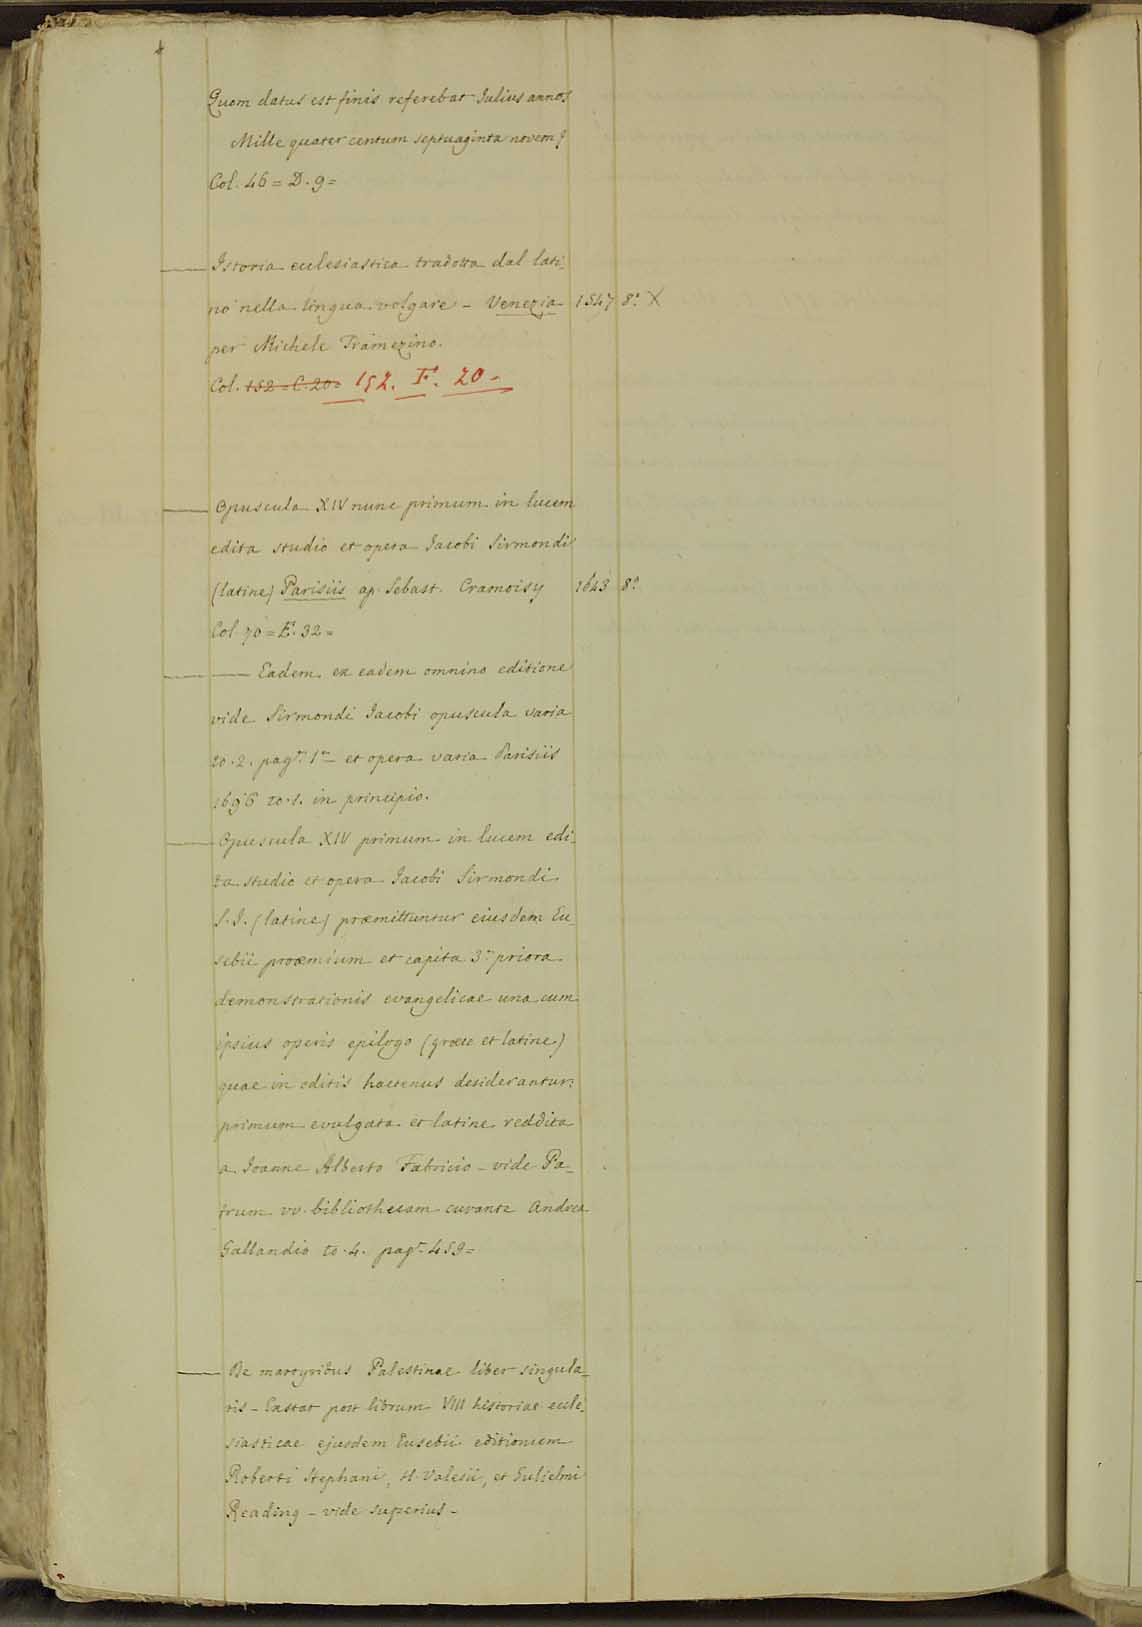 Quom datus est finis referebat Julius annos
Mille quater centum septuaginta novem
Col. 46 = D. 9 =
Istoria ecclesiastica tradotta dal lati-
no nella lingua volgare - Venezia 1547 8.° X
per Michele Tramezino.
Col. 152 = C. 20 = 152. F. 20 -
Opuscula XIV nunc primum in lucem
edita studio et opera Jacobi Sirmondi
(latine) Parisiis ap. Sebast. Cramoisy 1643 8.°
Col. 70 = E. 32 =
Eadem ex eadem omnino editione
vide Sirmondi Jacobi opuscula varia
to. 2. pag. 1 et opera varia Parisiis
1696 to. 1. in principio.
Opuscula XIV primum in lucem edi-
ta studio et opera Jacobi Sirmondi
S. J. (latine) præmittuntur eiusdem Eu-
sebii proœmium et capita 3 priora
demonstrationis evangelicae una cum
ipsius operis epilogo (græce et latine)
quae in editis hactenus desiderantur:
primum evulgata et latine reddita
a Joanne Alberto Fabricio - vide Pa-
trum vv. bibliothecam curante Andrea
Gallandio to. 4. pag. 459 =
De martyribus Palestinae liber singula-
ris - Exstat post librum VIII historiae eccle-
siasticae ejusdem Eusebii editionum
Roberti Stephani, H. Valesii, et Gulielmi
Reading - vide superius -